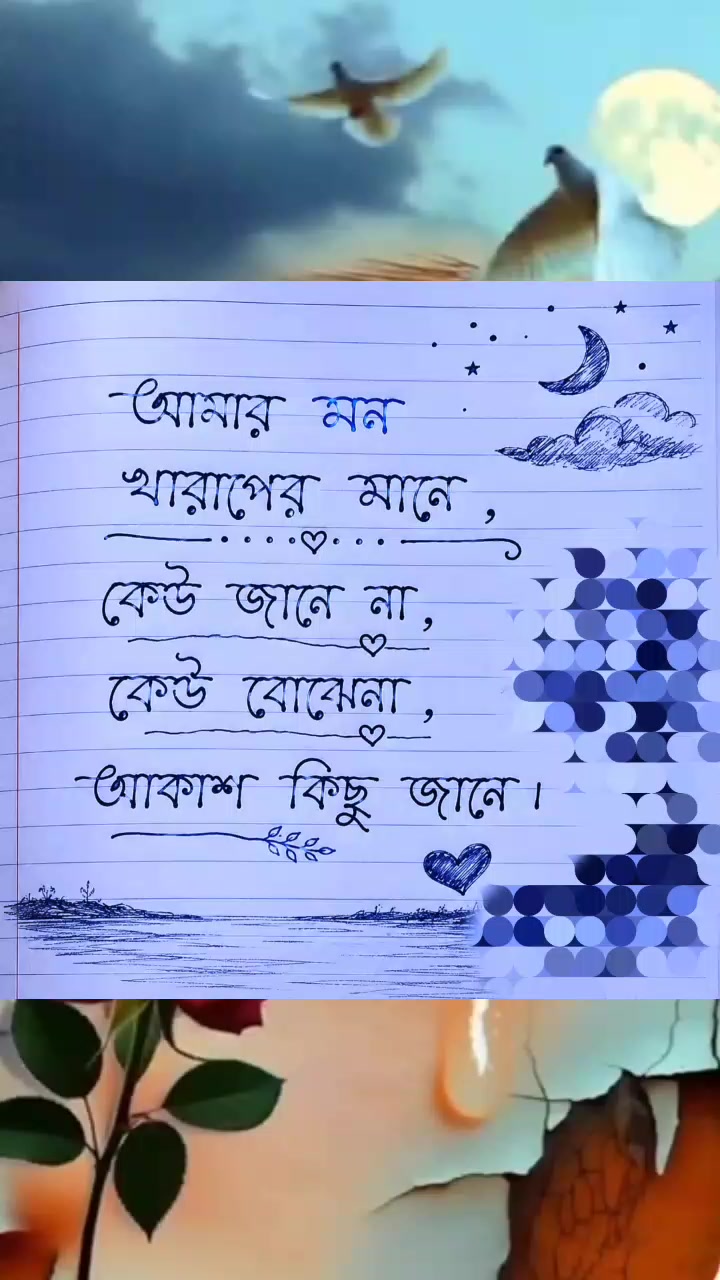 আমার মন
খারাপের মানে,
কেউ জানে না,
কেউ বোঝেনা,
আকাশ কিছু জানে।